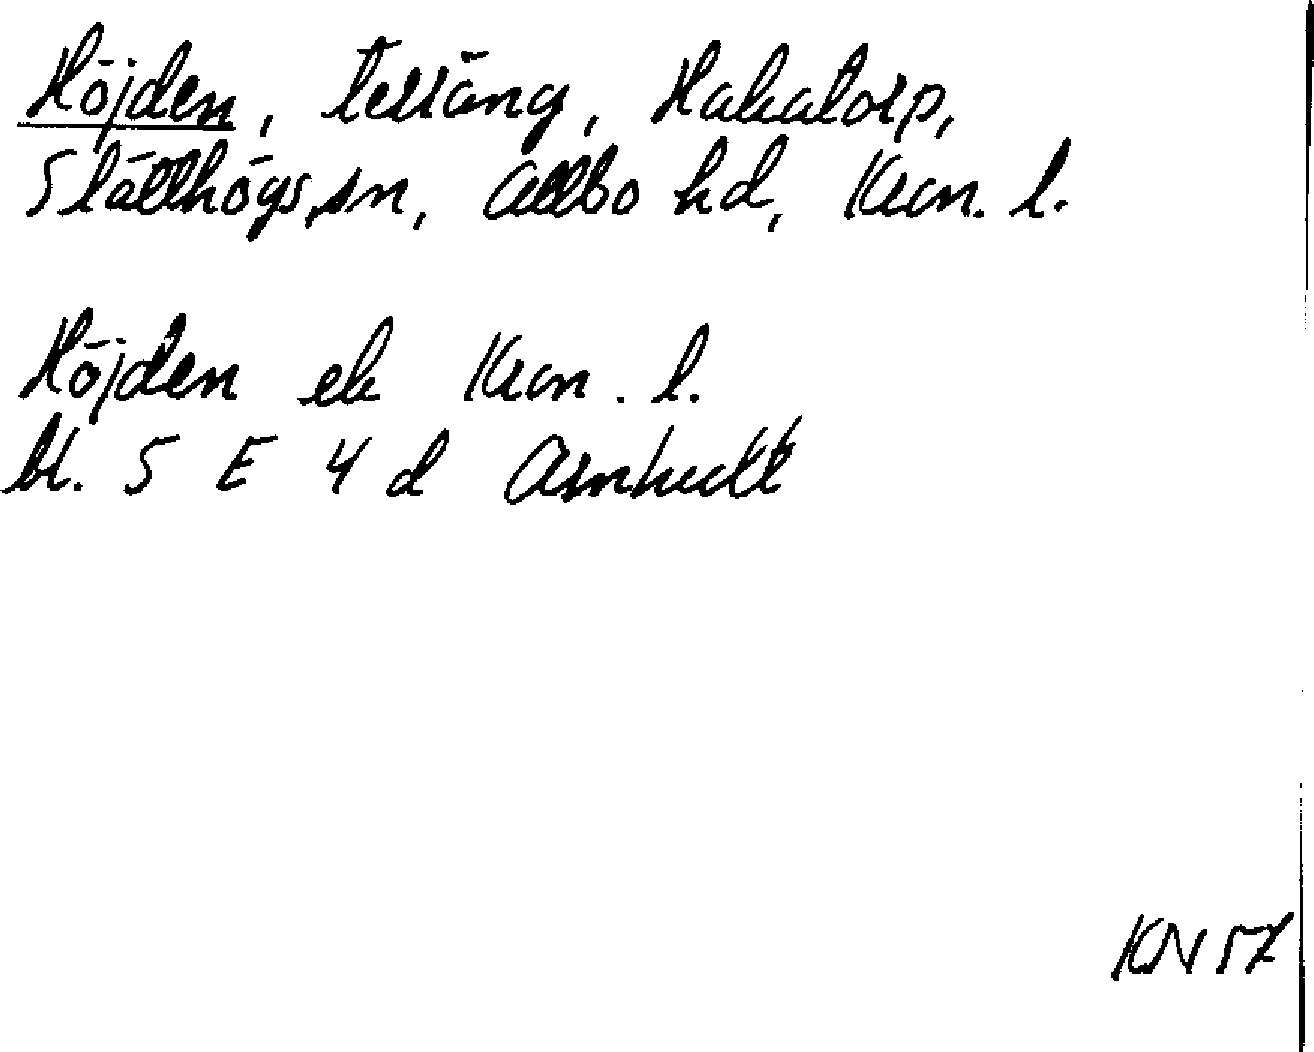 Höjden, terräng, Hakatorp,
Slätthögs sn, Allbo hd, Kron. l.
Höjden ek Kron. l.
bl. 5 E 4 d Arnhult
KN 57